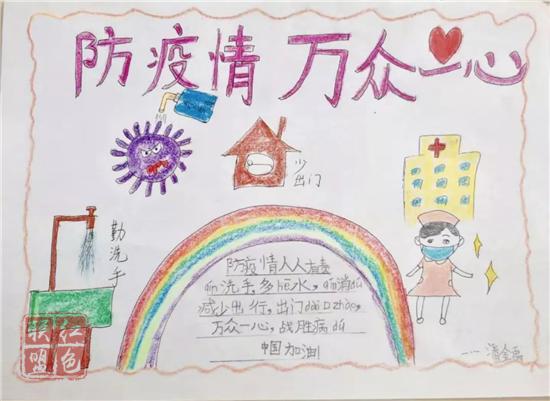 防疫情 万众一心
少
出门
勤洗手
防疫情人人有责
qin洗手,多he水,qin消dú
减少出行,出门dài口zhào,
万众一心,战胜病dú
中国加油!
红色
联盟